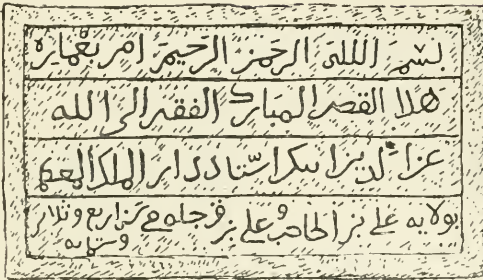 بسم الله الرحمن الرحيم امر بعمارة
هذا القصر المبارك الفقير الى الله
عز الدين ايبك استاددار الملك المعظم
بولايه علي بن الحاجب وعلي بن في سنه اربع وثلاثين
وستمايه